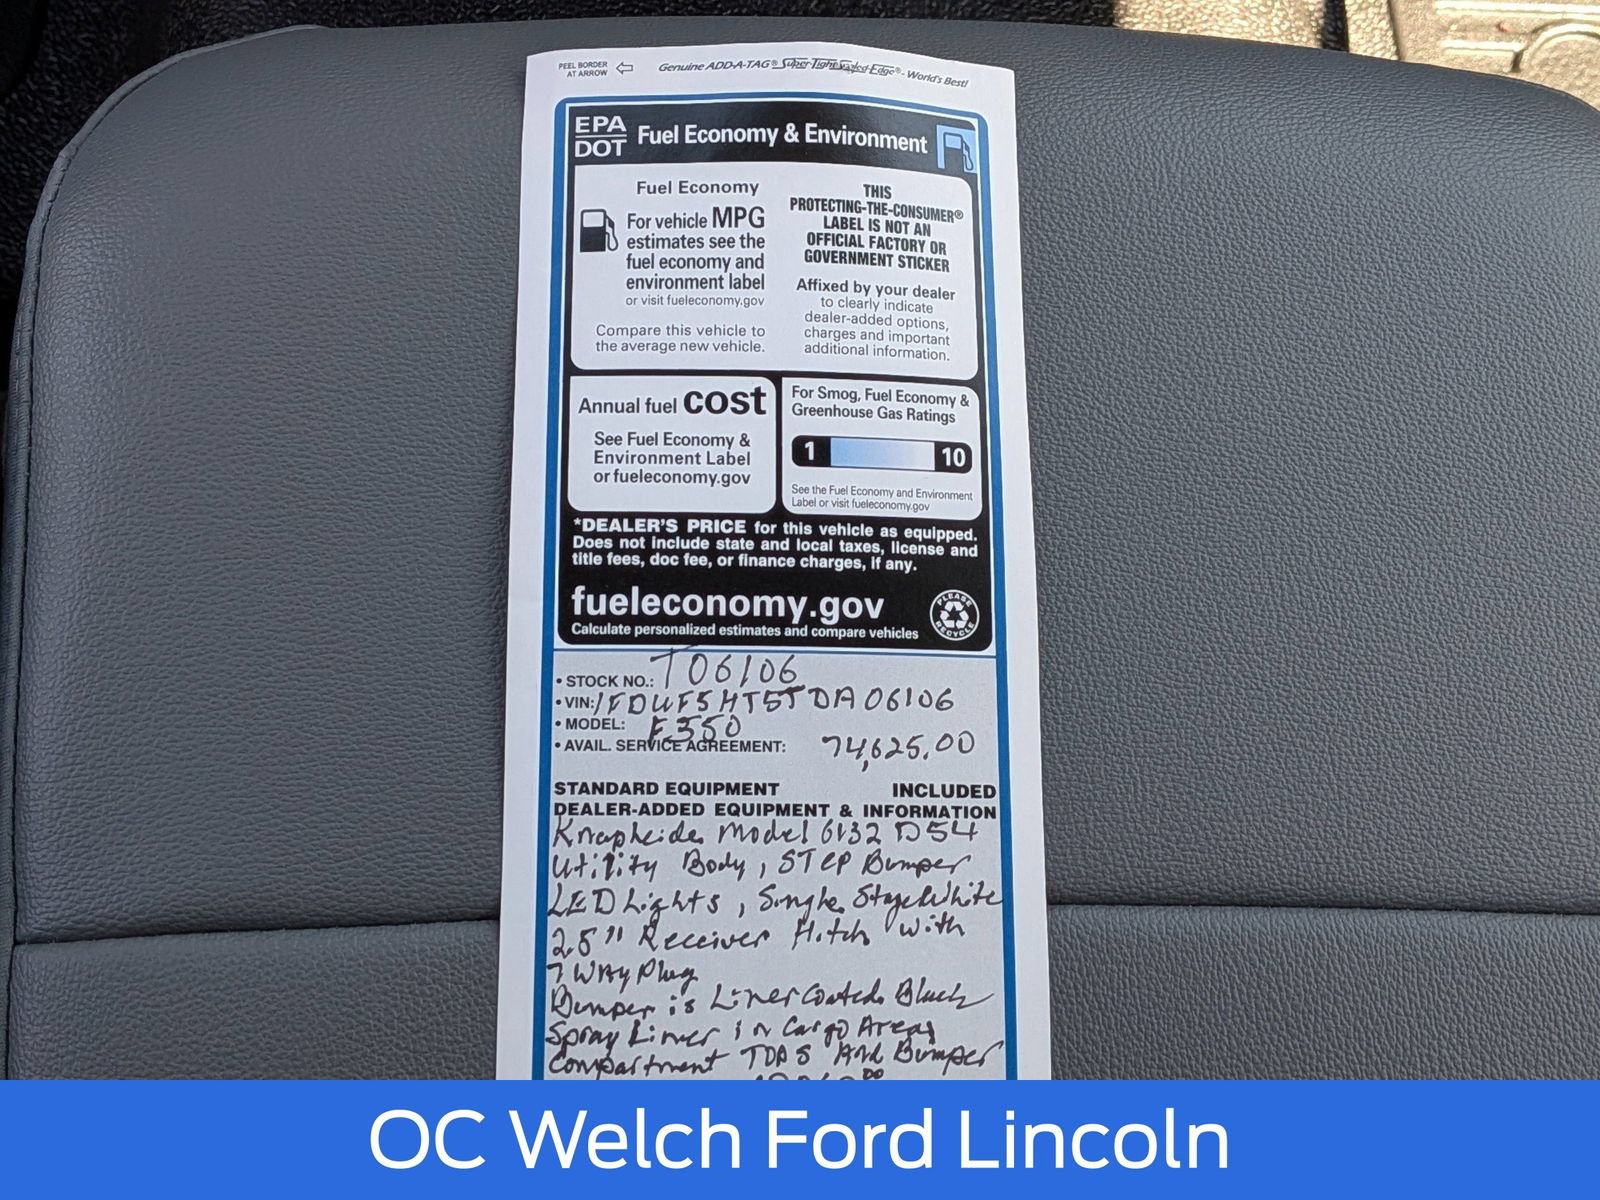 PEEL BORDER
AT ARROW
Genuine ADD-A-TAG® Super-Tight Sealed-Edge® - World's Best!
EPA
DOT
Fuel Economy & Environment
Fuel Economy
For vehicle MPG
estimates see the
fuel economy and
environment label
or visit fueleconomy.gov
Compare this vehicle to
the average new vehicle.
THIS
PROTECTING-THE-CONSUMER®
LABEL IS NOT AN
OFFICIAL FACTORY OR
GOVERNMENT STICKER
Affixed by your dealer
to clearly indicate
dealer-added options,
charges and important
additional information.
Annual fuel cost
See Fuel Economy &
Environment Label
or fueleconomy.gov
For Smog, Fuel Economy &
Greenhouse Gas Ratings
1 10
See the Fuel Economy and Environment
Label or visit fueleconomy.gov
*DEALER'S PRICE for this vehicle as equipped.
Does not include state and local taxes, license and
title fees, doc fee, or finance charges, if any.
fueleconomy.gov
Calculate personalized estimates and compare vehicles
PLEASE RECYCLE
• STOCK NO.: T06106
• VIN: 1FDUF5HT5TDA06106
• MODEL: F550
• AVAIL. SERVICE AGREEMENT: 74,625.00
STANDARD EQUIPMENT INCLUDED
DEALER-ADDED EQUIPMENT & INFORMATION
Knapheide Model 6132 D54
Utility Body, STEP Bumper
LED Lights, Single Stage White
2.5" Receiver Hitch with
7 Way Plug
Bumper is Liner Coated Black
Spray Liner in Cargo Area,
Compartment TOPS And Bumper
OC Welch Ford Lincoln